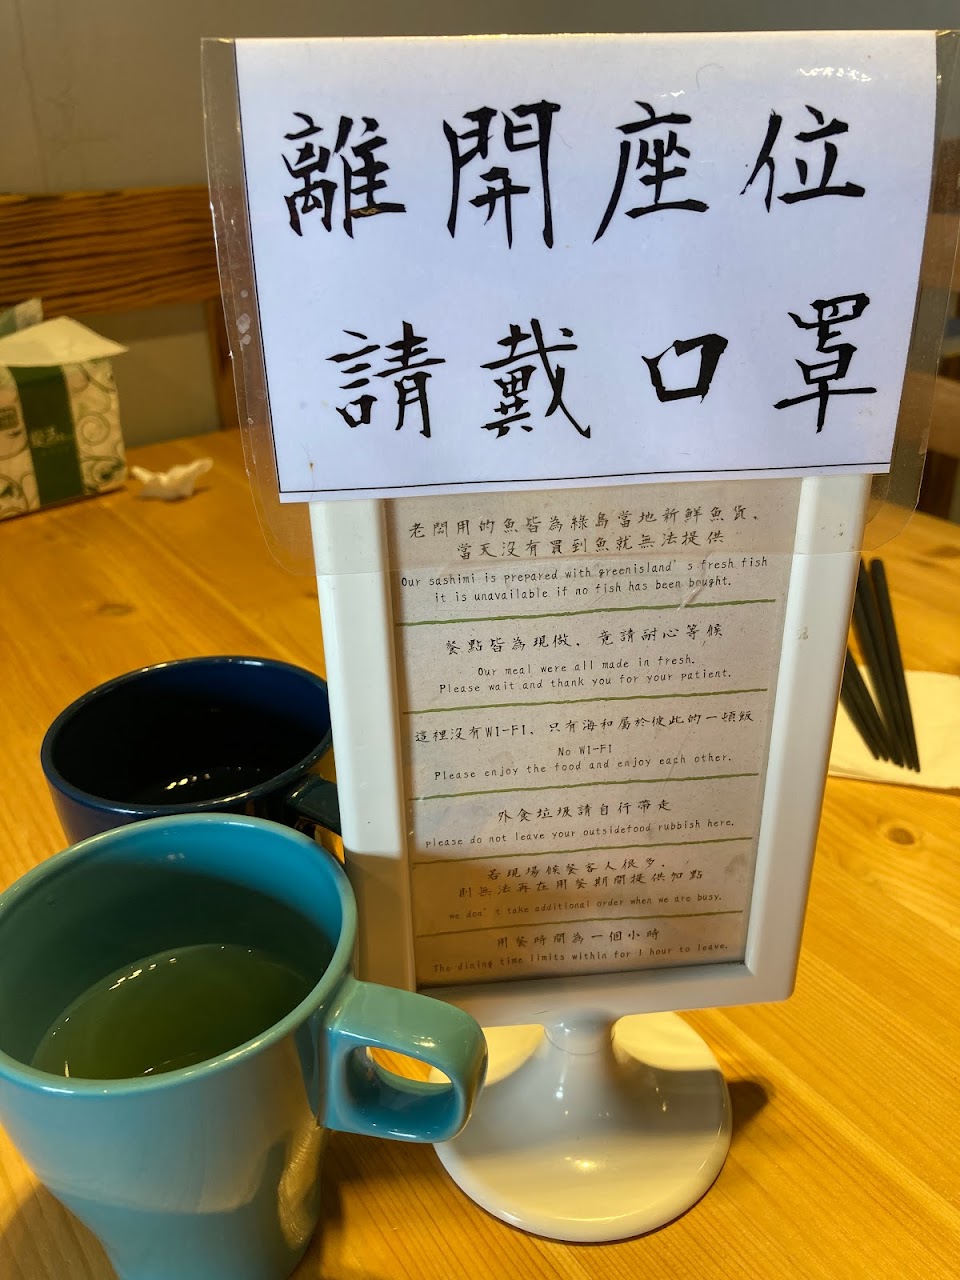 離開座位
請戴口罩
老闆用的魚皆為綠島當地新鮮魚貨，
當天沒有買到魚就無法提供
Our sashimi is prepared with greenisland's fresh fish
it is unavailable if no fish has been bought.
餐點皆為現做，竟請耐心等候
Our meal were all made in fresh.
Please wait and thank you for your patient.
這裡沒有WI-FI，只有海和屬於彼此的一頓飯
No WI-FI
Please enjoy the food and enjoy each other.
外食垃圾請自行帶走
please do not leave your outsidefood rubbish here.
若現場候餐客人很多，
則無法再在用餐期間提供加點
we don't take additional order when we are busy.
用餐時間為一個小時
The dining time limits within for 1 hour to leave.